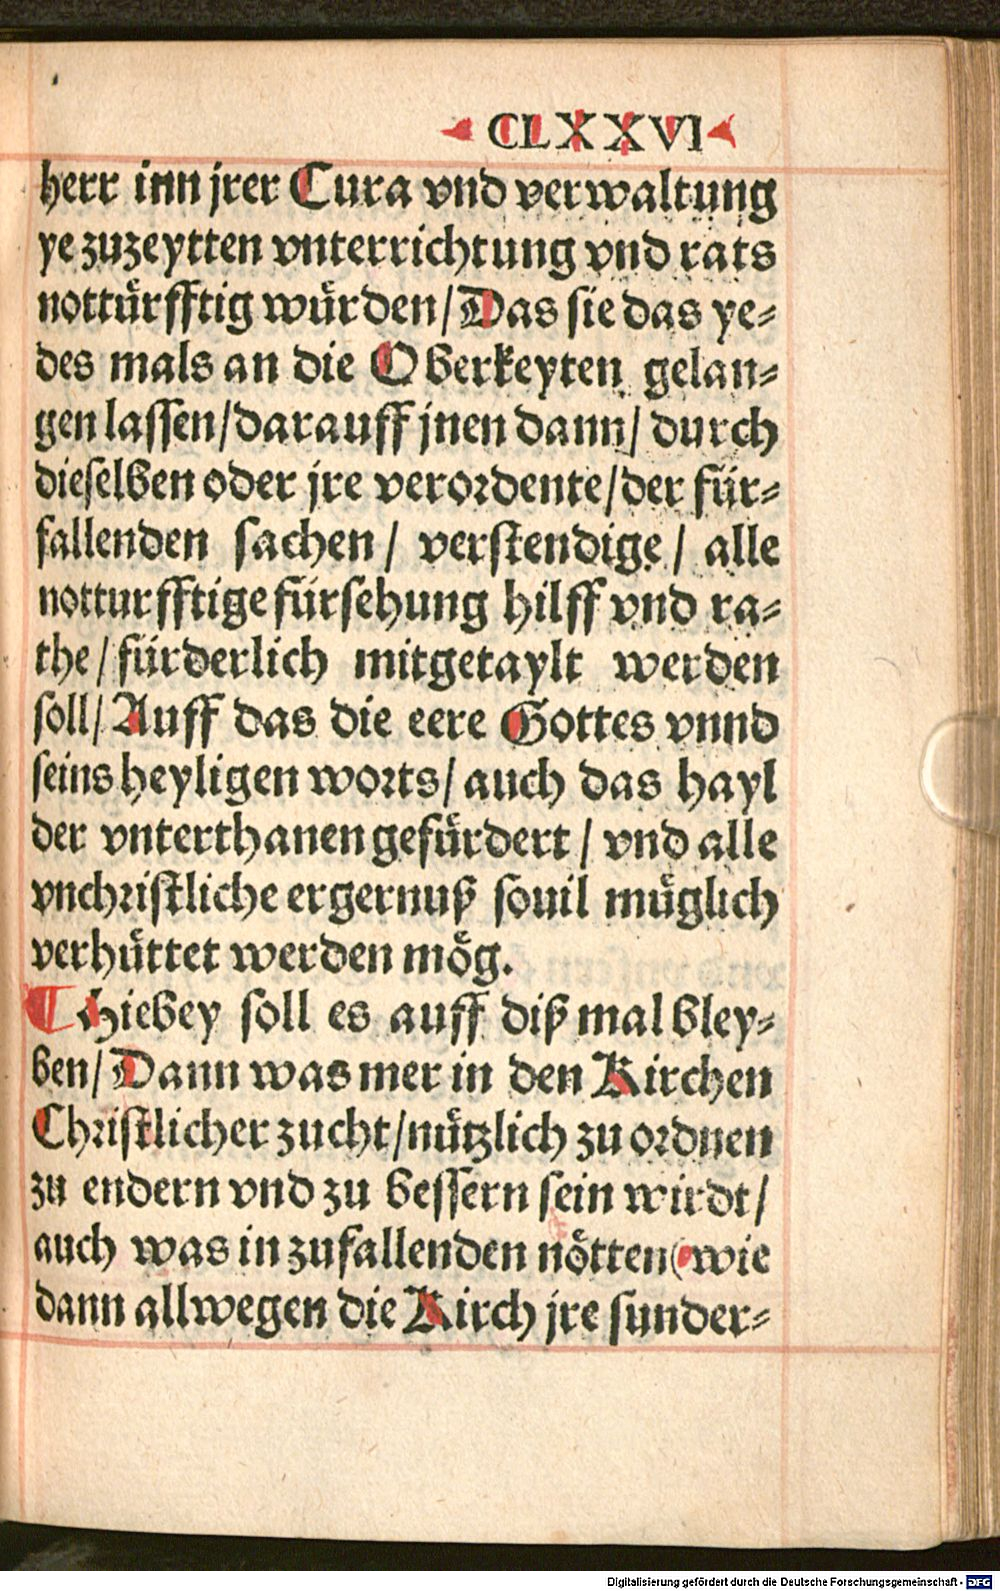 CLXXVI
herr inn jrer Cura vnd verwaltung
ye zuzeytten vnterrichtung vnd rats
nottürfftig würden/ Das sie das ye⸗
des mals an die Oberkeyten gelan⸗
gen lassen/ darauff jnen dann/ durch
dieselben oder jre verordente/ der für⸗
fallenden sachen/ verstendige/ alle
notturfftige fürsehung hilff vnd ra⸗
the/ fürderlich mitgetaylt werden
soll/ Auff das die eere Gottes vnnd
seins heyligen worts/ auch das hayl
der vnterthanen gefürdert/ vnd alle
vnchristliche ergernuß souil müglich
verhüttet werden mög.
hiebey soll es auff diß mal bley⸗
ben/ Dann was mer in den Kirchen
Christlicher zucht/ nützlich zu ordnen
zu endern vnd zu bessern sein wirdt/
auch was in zufallenden nötten (wie
dann allwegen die Kirch jre sunder⸗
Digitalisierung gefördert durch die Deutsche Forschungsgemeinschaft - DFG